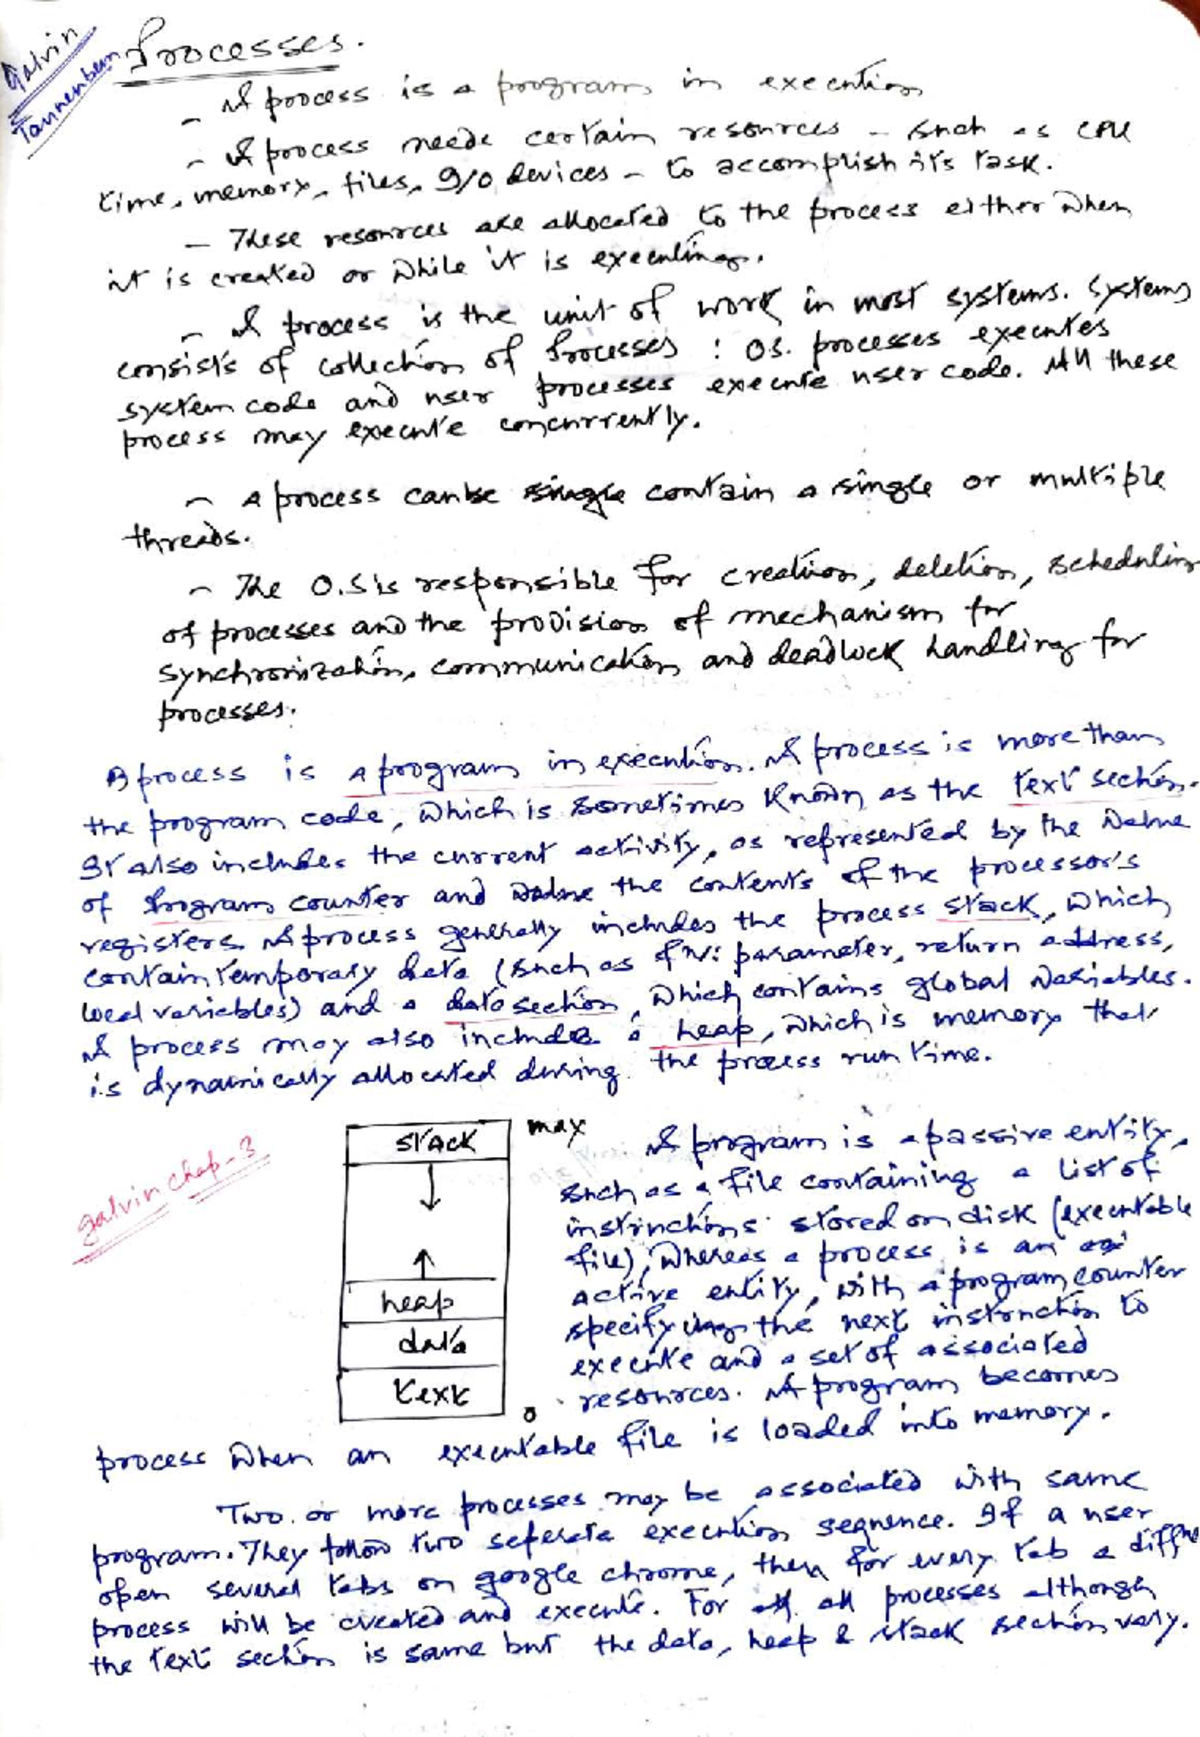 Galvin
Tannenbem
Processes.
- A process is a program in execution
- A process needs certain resources - such as CPU
time, memory, files, I/O devices - to accomplish its task.
- These resources are allocated to the process either when
it is created or while it is executing.
- A process is the unit of work in most systems. Systems
consists of collection of Processes : OS. processes executes
system code and user processes execute user code. All these
process may execute concurrently.
- A process canbe single contain a single or multiple
threads.
- The O.S is responsible for creation, deletion, scheduling
of processes and the provision of mechanism for
synchronization, communication and deadlock handling for
processes.
A process is a program in execution. A process is more than
the program code, which is sometimes known as the text section.
It also includes the current activity, as represented by the value
of Program counter and value the contents of the processor's
registers. A process generally includes the process stack, which
contain temporary data (such as fn: parameter, return address,
local variables) and a data section, which contains global variables.
A process may also include a heap, which is memory that
is dynamically allocated during the process run time.
galvin chap-3
stack
max
heap
data
text
0
A program is a passive entity,
such as a file containing a list of
instructions stored on disk (executable
file), whereas a process is an
active entity, with a program counter
specifying the next instruction to
execute and a set of associated
resources. A program becomes
process when an executable file is loaded into memory.
Two or more processes may be associated with same
program. They follow two seperate execution sequence. If a user
open several tabs on google chrome, then for every tab a
process will be created and execute. For all processes although
the text section is same but the data, heap & stack section vary.